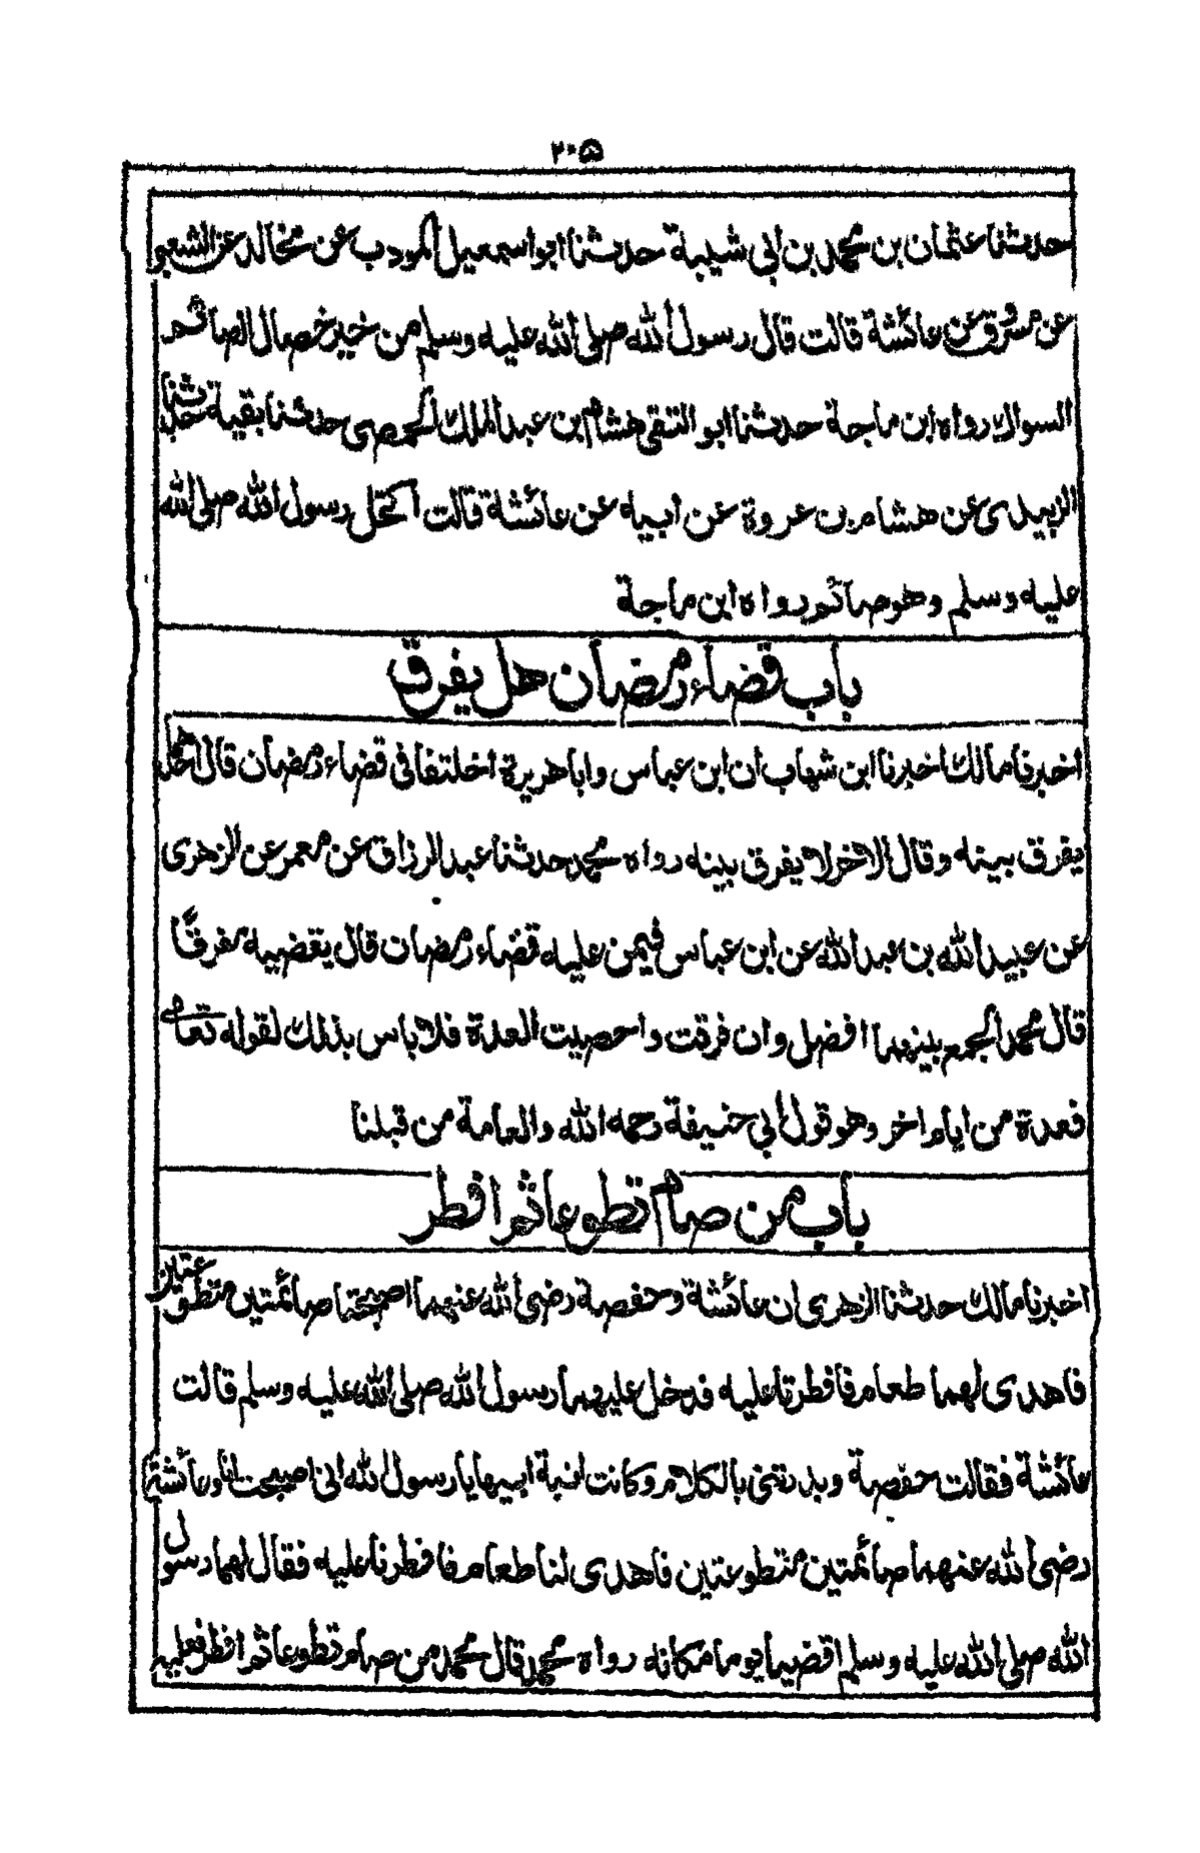 ٢٠٥
حدثنا عثمان بن محمد بن ابي شيبة حدثنا ابو اسمعيل المودب عن مخالد عن الشعبي
عن مسروق عن عائشة قالت قال رسول الله صلى الله عليه وسلم من خير خصال الصائم
السواك رواه ابن ماجة حدثنا ابو التقى هشام بن عبد الملك الحمصى حدثنا بقية حدثنا
الزبيدى عن هشام بن عروة عن ابيه عن عائشة قالت اكتحل رسول الله صلى الله
عليه وسلم وهو صائم رواه ابن ماجة
باب قضاء رمضان هل يفرق
اخبرنا مالك اخبرنا ابن شهاب ان ابن عباس وابا هريرة اختلفا فى قضاء رمضان قال احدهما
يفرق بينه وقال الاخر لا يفرق بينه رواه محمد حدثنا عبد الرزاق عن معمر عن الزهرى
عن عبيد الله بن عبد الله عن ابن عباس فيمن عليه قضاء رمضان قال يقضيه مفرقا
قال محمد الجمع بينهما افضل وان فرقت واحصيت العدة فلا باس بذلك لقوله تعالى
فعدة من ايام اخر وهو قول ابي حنيفة رحمه الله والعامة من قبلنا
باب من صام تطوعا ثم افطر
اخبرنا مالك حدثنا الزهرى ان عائشة وحفصة رضى الله عنهما اصبحتا صائمتين متطوعتين
فاهدى لهما طعام فافطرتا عليه فدخل عليهما رسول الله صلى الله عليه وسلم قالت
عائشة فقالت حفصة وبدرتنى بالكلام وكانت ابنة ابيها يا رسول الله انى اصبحت انا وعائشة
رضى الله عنهما صائمتين متطوعتين فاهدى لنا طعام فافطرنا عليه فقال لهما رسول
الله صلى الله عليه وسلم اقضيا يوما مكانه رواه محمد قال محمد من صام تطوعا ثم افطر فعليه